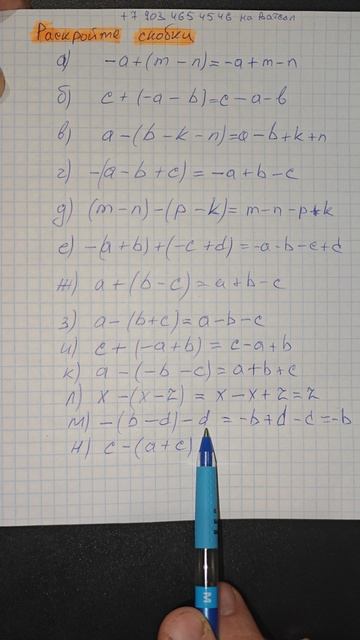 +7 903 465 45 46 на Ватсап
Раскройте скобки
а) -a+(m-n)=-a+m-n
б) c+(-a-b)=c-a-b
в) a-(b-k-n)=a-b+k+n
г) -(a-b+c)=-a+b-c
д) (m-n)-(p-k)=m-n-p+k
е) -(a+b)+(-c+d)=-a-b-c+d
ж) a+(b-c)=a+b-c
з) a-(b+c)=a-b-c
и) c+(-a+b)=c-a+b
к) a-(-b-c)=a+b+c
л) x-(x-z)=x-x+z=z
м) -(b-d)-d=-b+d-d=-b
н) c-(a+c)
M